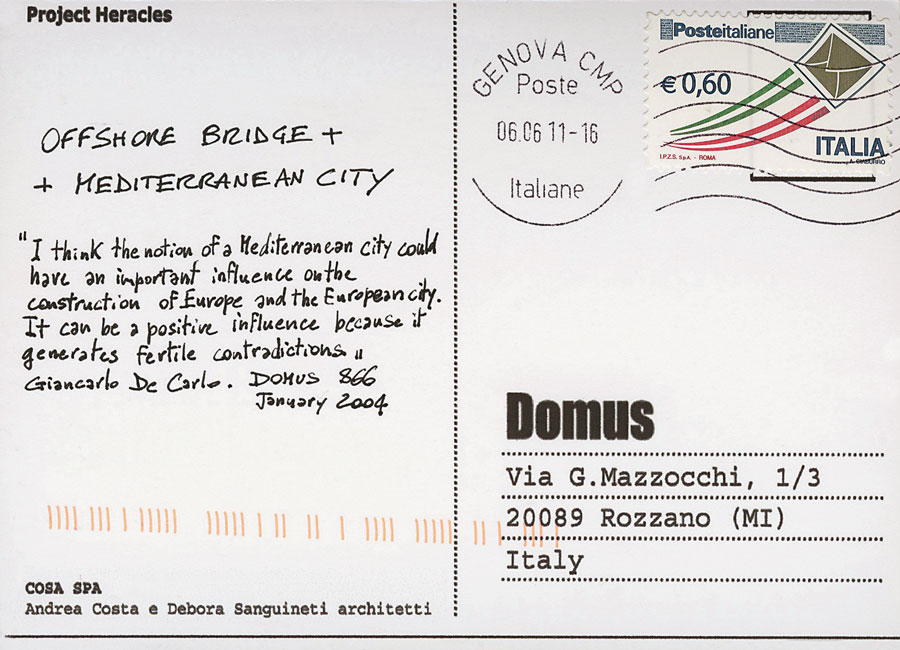 Project Heracles
OFFSHORE BRIDGE +
+ MEDITERRANEAN CITY
"I think the notion of a Mediterranean city could
have an important influence on the
construction of Europe and the European city.
It can be a positive influence because it
generates fertile contradictions"
Giancarlo De Carlo. DOMUS 866
January 2004
COSA SPA
Andrea Costa e Debora Sanguineti architetti
GENOVA CMP
Poste
06.06 11-16
Italiane
Posteitaliane
€ 0,60
ITALIA
I.P.Z.S. S.p.A. - ROMA
Domus
Via G.Mazzocchi, 1/3
20089 Rozzano (MI)
Italy